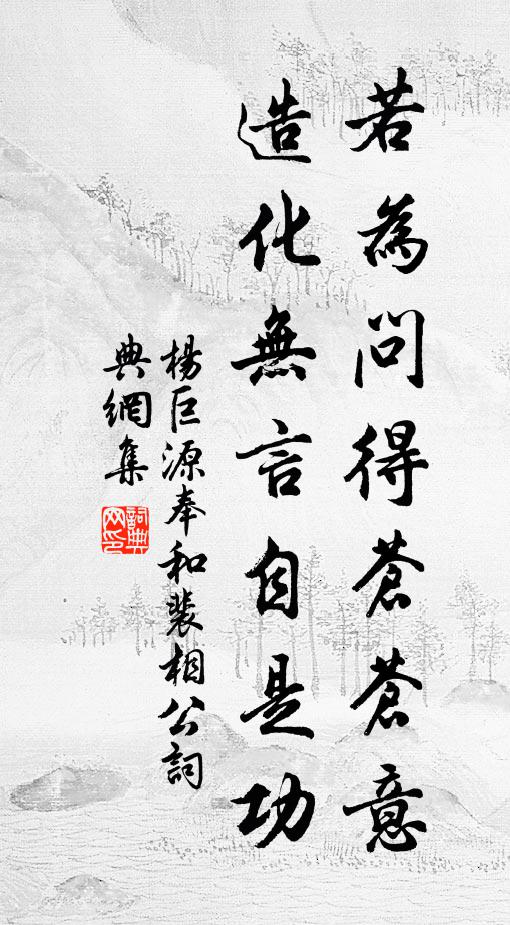 若為問得蒼蒼意
造化無言自是功
楊巨源奉和裴相公詞
典網集
詞典网印